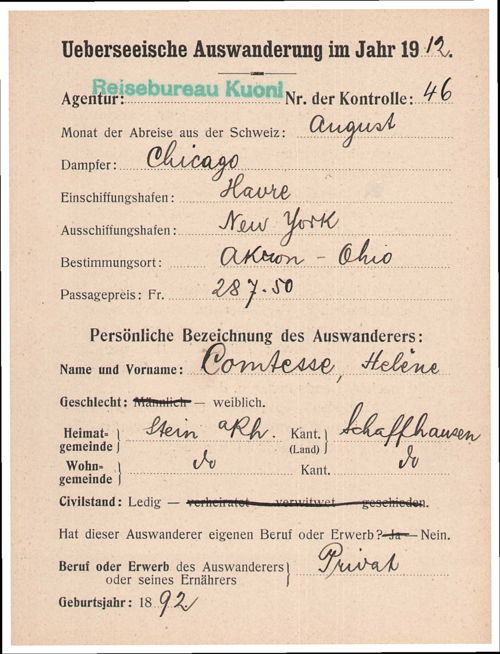 Ueberseeische Auswanderung im Jahr 1912.
Agentur: Reisebureau Kuoni Nr. der Kontrolle: 46
Monat der Abreise aus der Schweiz: August
Dampfer: Chicago
Einschiffungshafen: Havre
Ausschiffungshafen: New York
Bestimmungsort: Akron - Ohio
Passagepreis: Fr. 287.50
Persönliche Bezeichnung des Auswanderers:
Name und Vorname: Comtesse, Helène
Geschlecht: Männlich — weiblich.
Heimat-gemeinde } Stein a/Rh. Kant. (Land) } Schaffhausen
Wohn-gemeinde } do Kant. do
Civilstand: Ledig — verheiratet verwitwet geschieden.
Hat dieser Auswanderer eigenen Beruf oder Erwerb? Ja — Nein.
Beruf oder Erwerb des Auswanderers
oder seines Ernährers } Privat
Geburtsjahr: 1892